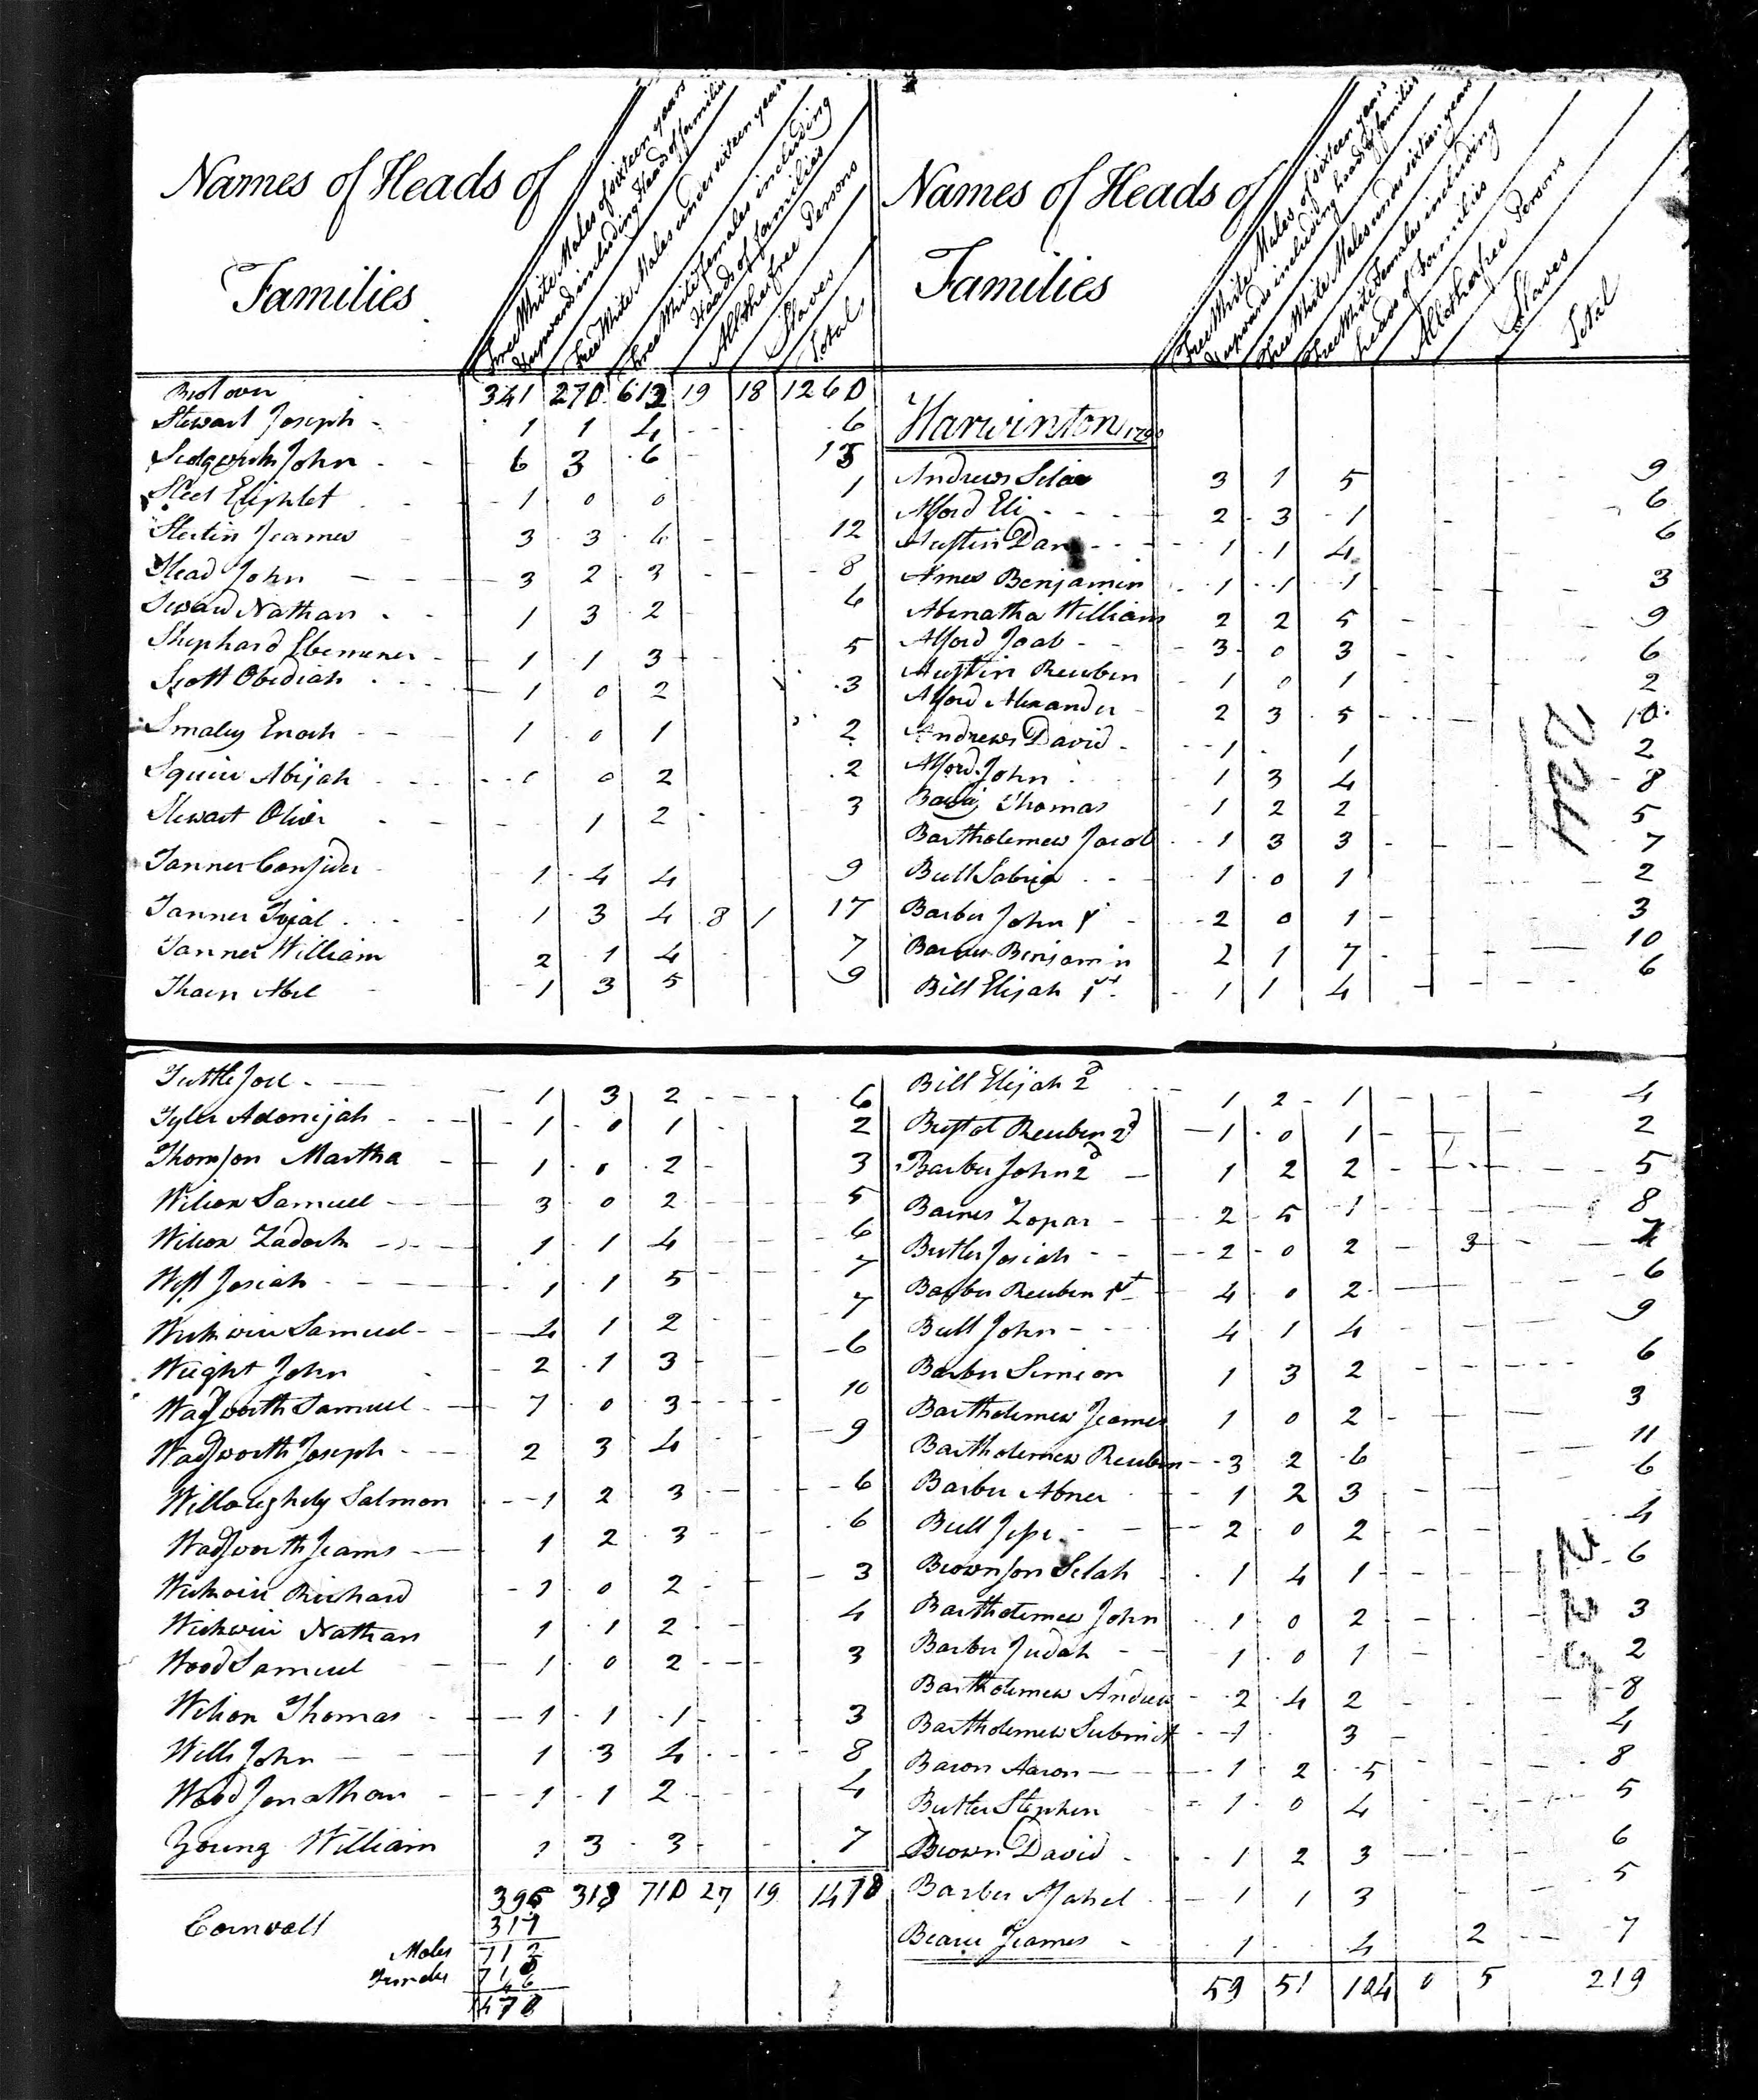 Names of Heads of
Families
Free White Males of sixteen years
& upwards including Heads of families
Free White Males under sixteen years
Free White Females including
Heads of families
All other free Persons
Slaves
Total
Brot over 341 270 612 19 18 1260
Stewart Joseph - 1 1 4 - - - 6
John - - 6 3 6 - 15
Eliphlet 1 0 0 1
Jeames 3 3 4 - 12
Head John - - - 3 2 3 - - 8
Seward Nathan - - 1 3 2 - 6
Shephard Ebenener - 1 1 3 - 5
Scott Obediah - - - 1 0 2 3
Smaley Enoch - - 1 0 1 2
Squire Abijah - - - 1 0 2 2
Stewart Oliver - - - 1 2 - - 3
Tanner Consider - 1 4 4 9
Tanner Tryal - - - 1 3 4 8 1 17
Tanner William 2 1 4 7
Abel - 1 3 5 9
Tuttle Joel - - 1 3 2 - - - - 6
Tyler Adonijah - - - 1 0 1 - 2
Thomson Martha - 1 0 2 - 3
Wilson Samuell - - 3 0 2 - - - 5
Wilson Zadock - - - 1 1 4 - - - 6
West Josiah - - - 1 1 5 - - - 7
Wickwire Samuel - - 4 1 2 - - 7
Wright John - 2 1 3 - - 6
Wadsworth Samuel - - 7 0 3 - - - 10
Wadsworth Joseph - - 2 3 4 - - - 9
Willoughby Salmon - - 1 2 3 - - - 6
Wadsworth Jeams - - 1 2 3 - - - 6
Wickwire Richard - 1 0 2 - - - 3
Wickwire Nathan 1 1 2 - - 4
Wood Samuel - - 1 0 2 - - - 3
Wilson Thomas - - 1 1 1 - - - 3
Wells John - - - 1 3 4 - - - 8
Wood Jonathan - - - 1 1 2 - - - 4
Young William 1 3 3 - - 7
395 318 710 27 19 1478
Cornwall 317
Males 712
Females 710
46
1478
Names of Heads of
Families
Free White Males of sixteen years
& upwards including heads of families
Free White Males under sixteen years
Free White Females including
heads of families
All other free Persons
Slaves
Total
Harwinton 1790
Andrews Selae 3 1 5 9
Alford Eli - - - - 2 3 1 - 6
Austin Dan - - - 1 1 4 6
Ames Benjamin 1 1 1 - 3
Abernatha William 2 2 5 - - 9
Alford Joab - - 3 0 3 - - 6
Austin Reuben - 1 0 1 - 2
Alford Alexander - 2 3 5 - - - 10
Andrews David - - - 1 1 2
Alford John - 1 3 4 - 8
Thomas - 1 2 2 5
Bartholemew Jacob - 1 3 3 - - - 7
Bull Sabria - - - 1 0 1 - - 2
Barber John 1st - - - 2 0 1 - - 3
Barber Benjamin 2 1 7 - - - 10
Bill Elijah 1st - - 1 1 4 - - - - 6
Bill Elijah 2d - - 1 2 1 - - - 4
Bristol Reuben 2d - 1 0 1 - - 2
Barber John 2d - 1 2 2 - - - - 5
Barnes Zopar - - 2 5 1 - - - 8
Butler Josiah - - - - 2 0 2 - 3 - - 7
Barber Reuben 1st - 4 0 2 - - - 6
Bull John - - - 4 1 4 - - - 9
Barber Simeon 1 3 2 - - - - 6
Bartholemew Jeames 1 0 2 - - - 3
Bartholemew Reuben - - 3 2 6 - - 11
Barber Abner - 1 2 3 - - - 6
Bull Jesse - - - - 2 0 2 - - - 4
Brownson Selah - 1 4 1 - - - - 6
Bartholemew John - 1 0 2 - - - 3
Barber Judah - - - 1 0 1 - - 2
Bartholemew Andrew - 2 4 2 - - - 8
Bartholemew Submit - 1 3 - 4
Baron Aaron - - - - 1 2 5 - - - 8
Butler Stephen - 1 0 4 - - - - 5
Brown David - - - 1 2 3 - - - 6
Barber - 1 1 3 5
Jeames - 1 4 2 - - 7
59 51 104 0 5 219